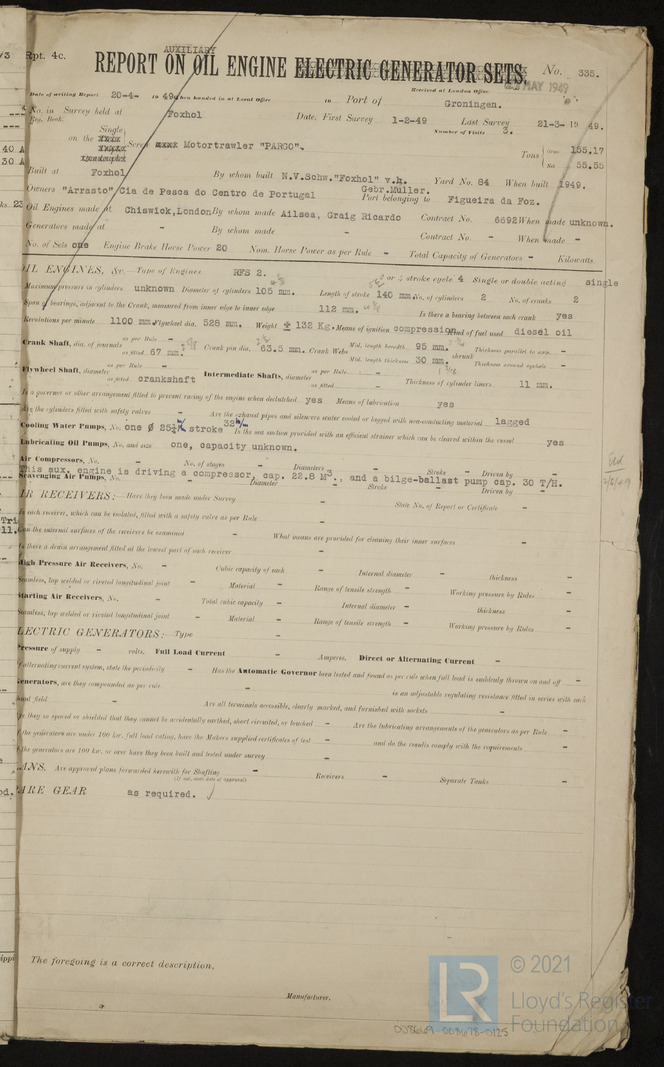 Rpt. 4c.
AUXILIARY
REPORT ON OIL ENGINE ELECTRIC GENERATOR SETS. No. 335.
Date of writing Report 20-4- 19 49 When handed in at Local Office 19 Port of Groningen.
Received at London Office MAY 1949
No. in Survey held at Foxhol Date, First Survey 1-2-49 Last Survey 21-3- 19 49.
Reg. Book. Number of Visits 3.
on the Single Screw Motortrawler "PARGO". Tons Gross 155.17 Net 55.55
Built at Foxhol By whom built N.V.Schw."Foxhol" v.h. Gebr.Muller. Yard No. 84 When built 1949.
Owners "Arrasto" Cia de Pesca do Centro de Portugal Port belonging to Figueira da Foz.
Oil Engines made at Chiswick,London By whom made Ailsea, Graig Ricardo Contract No. 6692 When made unknown.
Generators made at - By whom made - Contract No. - When made -
No. of Sets one Engine Brake Horse Power 20 Nom. Horse Power as per Rule - Total Capacity of Generators - Kilowatts.
OIL ENGINES, &c.—Type of Engines RFS 2. or 4 stroke cycle 4 Single or double acting single
Maximum pressure in cylinders unknown Diameter of cylinders 105 mm. Length of stroke 140 mm. No. of cylinders 2 No. of cranks 2
Span of bearings, adjacent to the Crank, measured from inner edge to inner edge 112 mm. Is there a bearing between each crank yes
Revolutions per minute 1100 Flywheel dia. 528 mm. Weight ± 132 Kg. Means of ignition compression Kind of fuel used diesel oil
Crank Shaft, dia. of journals as per Rule - as fitted 67 mm. Crank pin dia. 63.5 mm. Crank Webs Mid. length breadth 95 mm. Mid. length thickness 30 mm. shrunk Thickness parallel to axis - Thickness around eyehole -
Flywheel Shaft, diameter as per Rule - as fitted crankshaft Intermediate Shafts, diameter as per Rule - as fitted - Thickness of cylinder liners 11 mm.
Is a governor or other arrangement fitted to prevent racing of the engine when declutched yes Means of lubrication yes
Are the cylinders fitted with safety valves - Are the exhaust pipes and silencers water cooled or lagged with non-conducting material lagged
Cooling Water Pumps, No. one Ø 25½ stroke 32 Is the sea suction provided with an efficient strainer which can be cleared within the vessel yes
Lubricating Oil Pumps, No. and size one, capacity unknown.
Air Compressors, No. - No. of stages - Diameters - Stroke - Driven by -
This aux. engine is driving a compressor, cap. 22.8 M³., and a bilge-ballast pump cap. 30 T/H.
Scavenging Air Pumps, No. Diameter - Stroke - Driven by -
AIR RECEIVERS:—Have they been made under Survey - State No. of Report or Certificate -
Is each receiver, which can be isolated, fitted with a safety valve as per Rule -
Can the internal surfaces of the receivers be examined - What means are provided for cleaning their inner surfaces -
Is there a drain arrangement fitted at the lowest part of each receiver -
High Pressure Air Receivers, No. - Cubic capacity of each - Internal diameter - thickness -
Seamless, lap welded or riveted longitudinal joint - Material - Range of tensile strength - Working pressure by Rules -
Starting Air Receivers, No. - Total cubic capacity - Internal diameter - thickness -
Seamless, lap welded or riveted longitudinal joint - Material - Range of tensile strength - Working pressure by Rules -
ELECTRIC GENERATORS:—Type -
Pressure of supply - volts. Full Load Current - Amperes. Direct or Alternating Current -
If alternating current system, state the periodicity - Has the Automatic Governor been tested and found as per rule when full load is suddenly thrown on and off -
Generators, are they compounded as per rule - is an adjustable regulating resistance fitted in series with each
shunt field - Are all terminals accessible, clearly marked, and furnished with sockets -
Are they so spaced or shielded that they cannot be accidentally earthed, short circuited, or touched - Are the lubricating arrangements of the generators as per Rule -
If the generators are under 100 kw. full load rating, have the Makers supplied certificates of test - and do the results comply with the requirements -
If the generators are 100 kw. or over have they been built and tested under survey -
PLANS. Are approved plans forwarded herewith for Shafting - Receivers - Separate Tanks -
(If not, state date of approval)
SPARE GEAR as required.
The foregoing is a correct description,
Manufacturer.
© 2021
Lloyd's Register
Foundation
LR